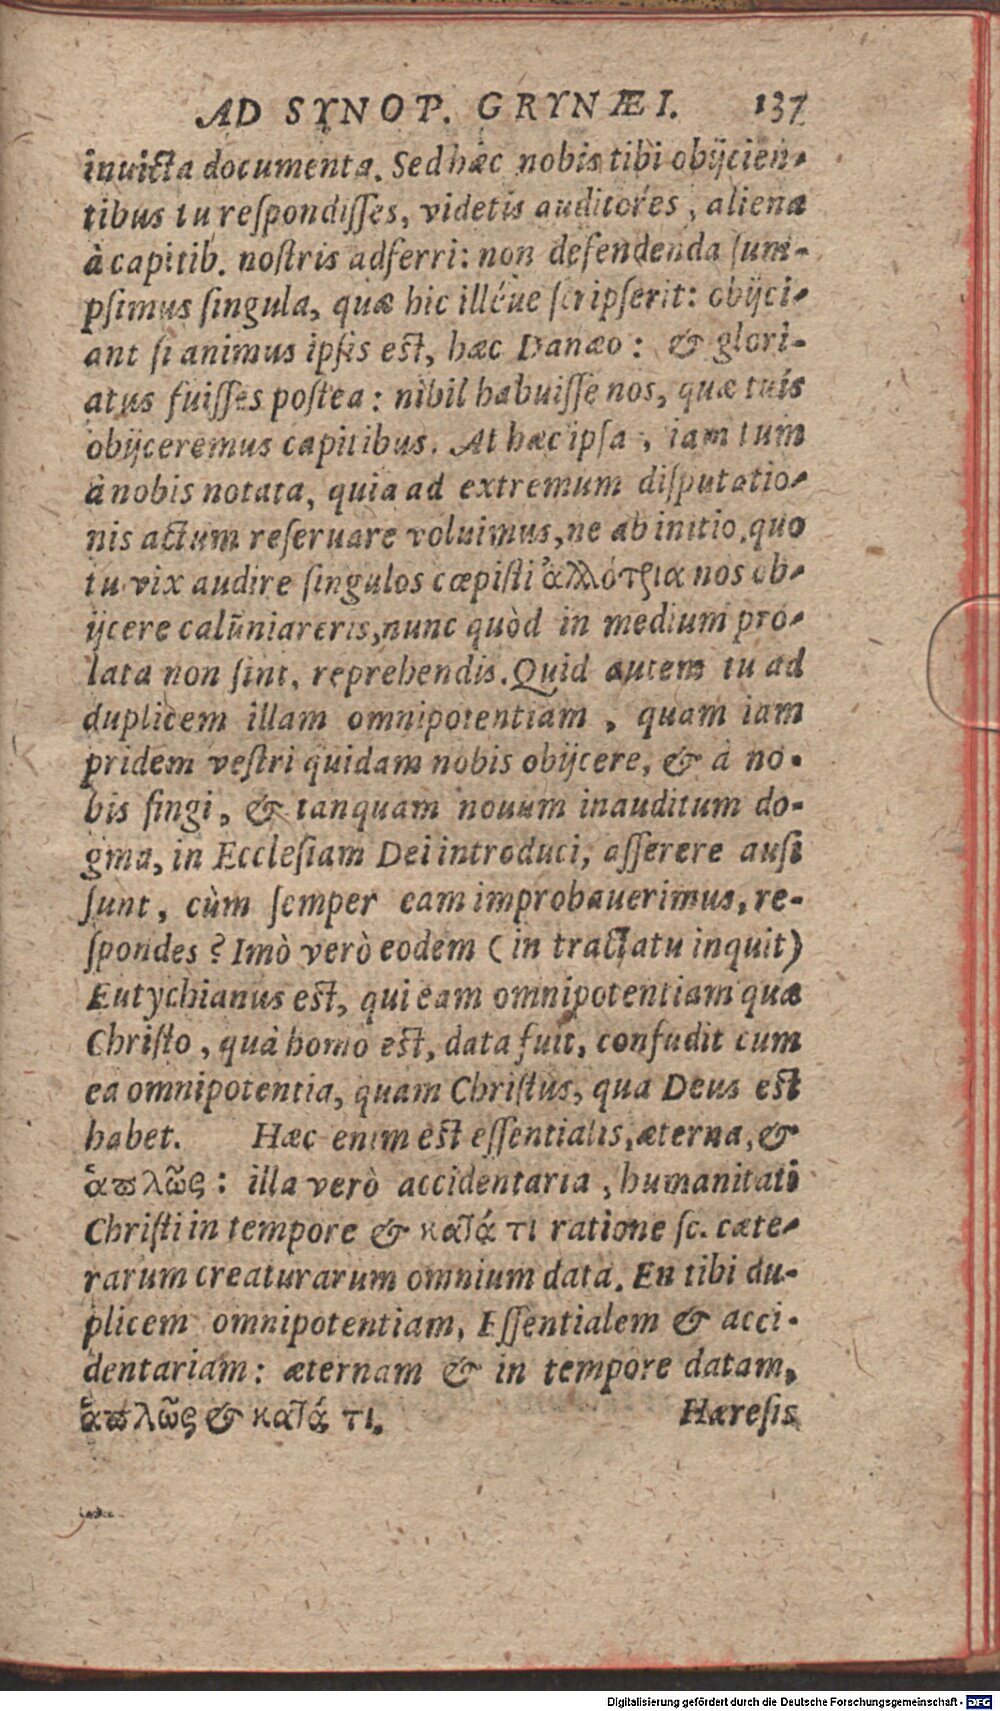 AD SYNOP. GRYNÆI. 137
inuicta documenta. Sed hæc nobis tibi obijcien-
tibus tu respondisses, videtis auditores, aliena
à capitib. nostris adferri: non defendenda sum-
psimus singula, quæ hic illéue scripserit: obijci-
ant si animus ipsis est, hæc Danæo: & glori-
atus fuisses postea: nihil habuisse nos, quæ tuis
obijceremus capitibus. At hæc ipsa, iam tum
à nobis notata, quia ad extremum disputatio-
nis actum reseruare voluimus, ne ab initio, quo
tu vix audire singulos cœpisti ἀλλότρια nos ob-
ijcere calūniareris, nunc quòd in medium pro-
lata non sint, reprehendis. Quid autem tu ad
duplicem illam omnipotentiam, quam iam
pridem vestri quidam nobis obijcere, & à no-
bis fingi, & tanquam nouum inauditum do-
gma, in Ecclesiam Dei introduci, asserere ausi
sunt, cùm semper eam improbauerimus, re-
spondes? Imò verò eodem (in tractatu inquit)
Eutychianus est, qui eam omnipotentiam quæ
Christo, quà homo est, data fuit, confudit cum
ea omnipotentia, quam Christus, qua Deus est
habet. Hæc enim est essentialis, æterna, &
ἁπλῶς: illa verò accidentaria, humanitati
Christi in tempore & κατά τι ratione sc. cæte-
rarum creaturarum omnium data. En tibi du-
plicem omnipotentiam, Essentialem & acci-
dentariam: æternam & in tempore datam,
ἁπλῶς & κατά τι. Hæresis
Digitalisierung gefördert durch die Deutsche Forschungsgemeinschaft - DFG